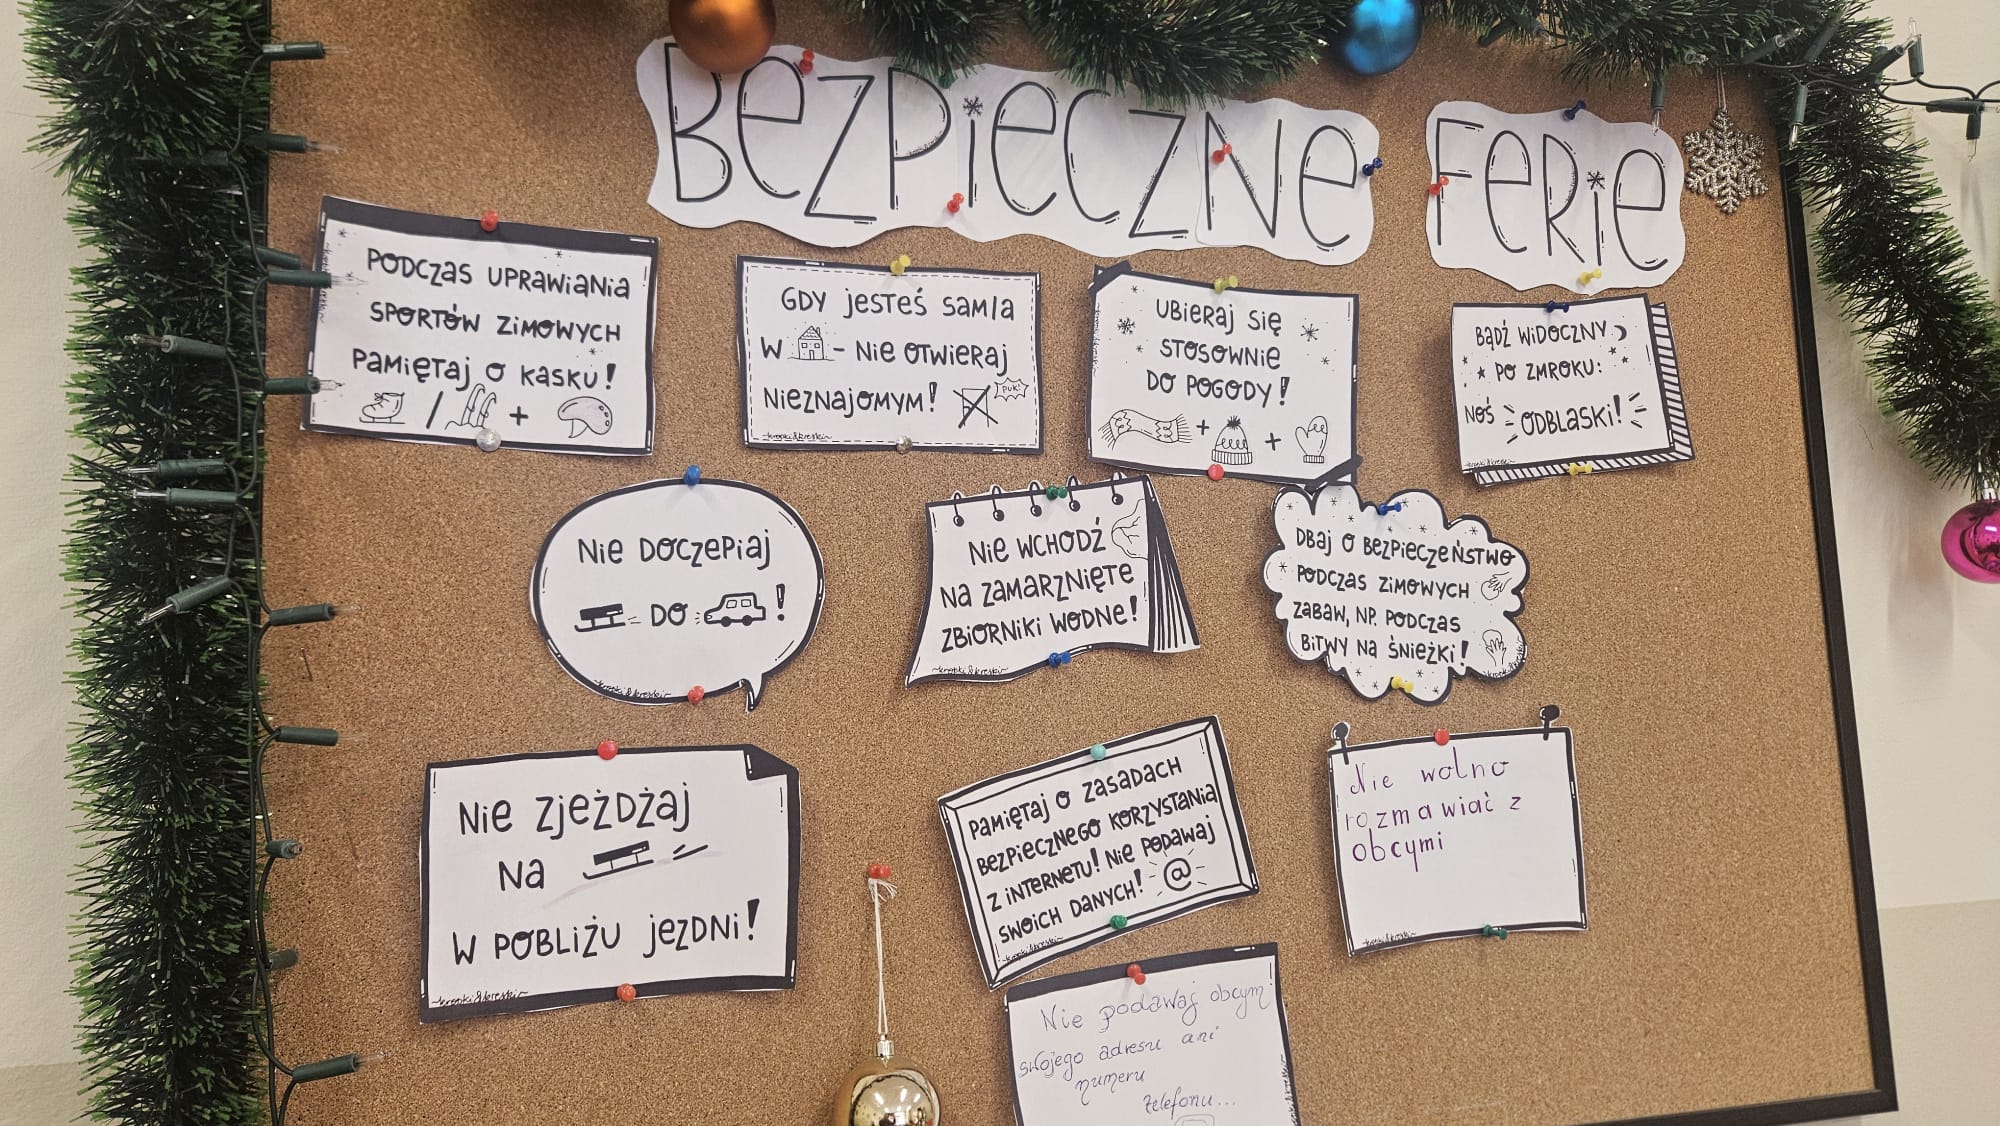 BEZPIECZNE FERIE
PODCZAS UPRAWIANIA
SPORTÓW ZIMOWYCH
PAMIĘTAJ O KASKU!
/ +
GDY JESTEŚ SAM/A
W - NIE OTWIERAJ
NIEZNAJOMYM!
PUK!
~kropki&kreski~
UBIERAJ SIĘ
STOSOWNIE
DO POGODY!
+ +
BĄDŹ WIDOCZNY
PO ZMROKU:
NOŚ ODBLASKI!
~kropki&kreski~
NIE DOCZEPIAJ
DO !
~kropki&kreski~
NIE WCHODŹ
NA ZAMARZNIĘTE
ZBIORNIKI WODNE!
~kropki&kreski~
DBAJ O BEZPIECZEŃSTWO
PODCZAS ZIMOWYCH
ZABAW, NP. PODCZAS
BITWY NA ŚNIEŻKI!
kropki&kreski
NIE ZJEŻDŻAJ
NA
W POBLIŻU JEZDNI!
~kropki&kreski~
PAMIĘTAJ O ZASADACH
BEZPIECZNEGO KORZYSTANIA
Z INTERNETU! NIE PODAWAJ
SWOICH DANYCH! @
~kropki&kreski~
Nie wolno
rozmawiać z
obcymi
~kropki&kreski~
Nie podawaj obcym
swojego adresu ani
numeru
telefonu...